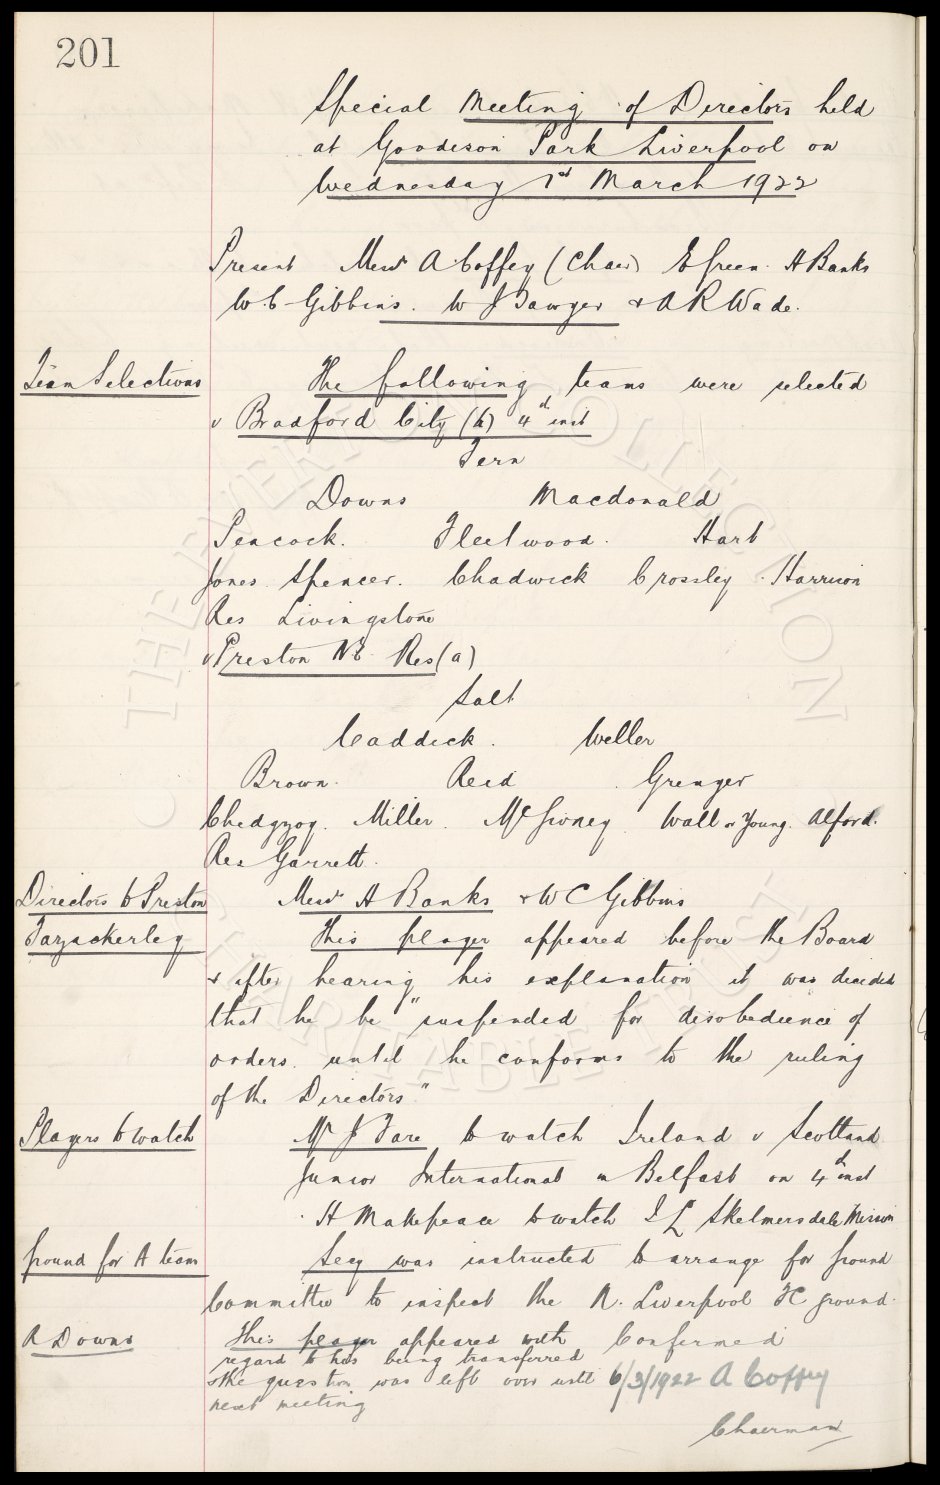 201
Special Meeting of Directors held
at Goodison Park Liverpool on
Wednesday 1st March 1922
Present Messrs A Coffey (Chair) E Green. H Banks
W C Gibbins. W J Sawyer & A R Wade.
Team Selections The following teams were selected
v Bradford City (h) 4th inst
Fern
Downs Macdonald
Peacock. Fleetwood. Hart
Jones. Spencer. Chadwick Crossley. Harrison
Res Livingstone
v Preston N E Res (a)
Salt
Caddick. Weller
Brown. Reid Grenyer
Chedgzoy. Miller. McGivney Wall or Young. Alford.
Res Garrett.
Directors to Preston Messrs H Banks & W C Gibbins
Tarzackerley This player appeared before the Board
& after hearing his explanation it was decided
that he be "suspended for disobedience of
orders until he conforms to the ruling
of the Directors"
Players to watch Mr J Fare to watch Ireland v Scotland
Junior International in Belfast on 4th inst
H Makepeace to watch I L Skelmersdale Mission
Ground for A team Secy was instructed to arrange for Ground
Committee to inspect the N. Liverpool FC ground.
R Downs This player appeared with
regard to his being transferred
& the question was left over until
next meeting
Confirmed
6/3/1922 A Coffey
Chairman
THE EVERTON COLLECTION
CHARITABLE TRUST